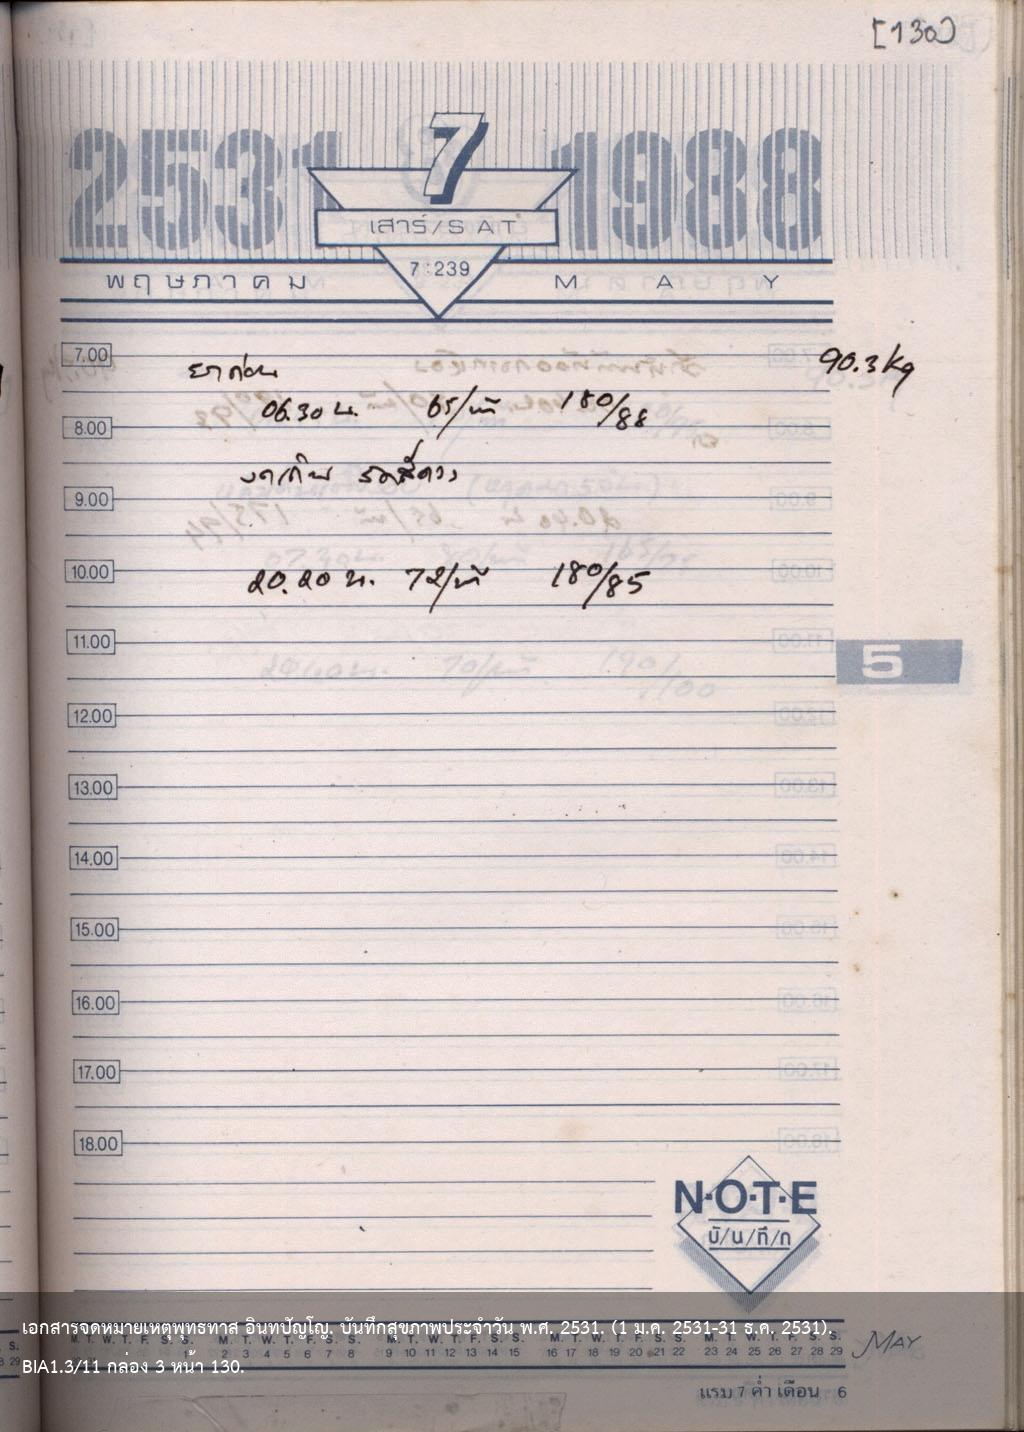 [130]
2531 7 1988
เสาร์/SAT
7:239
พฤษภาคม MAY
7.00
90.3 kg
ยาก่อน
06.30 น. 65/นาที 180/88
8.00
9.00
10.00
20.20 น. 72/นาที 180/85
11.00
5
12.00
13.00
14.00
15.00
16.00
17.00
18.00
N·O·T·E
บั/น/ทึ/ก
เอกสารจดหมายเหตุพุทธทาส อินทปัญโญ. บันทึกสุขภาพประจำวัน พ.ศ. 2531. (1 ม.ค. 2531-31 ธ.ค. 2531).
M. T. W. T. F. S. S. M. T. W. T. F. S. S. M. T. W. T. F. S. S. M. T. W. T. F. S. S. M. T. W. T. F. S. S.
1 2 3 4 5 6 7 8 9 10 11 12 13 14 15 16 17 18 19 20 21 22 23 24 25 26 27 28 29
MAY
BIA1.3/11 กล่อง 3 หน้า 130.
แรม 7 ค่ำ เดือน 6